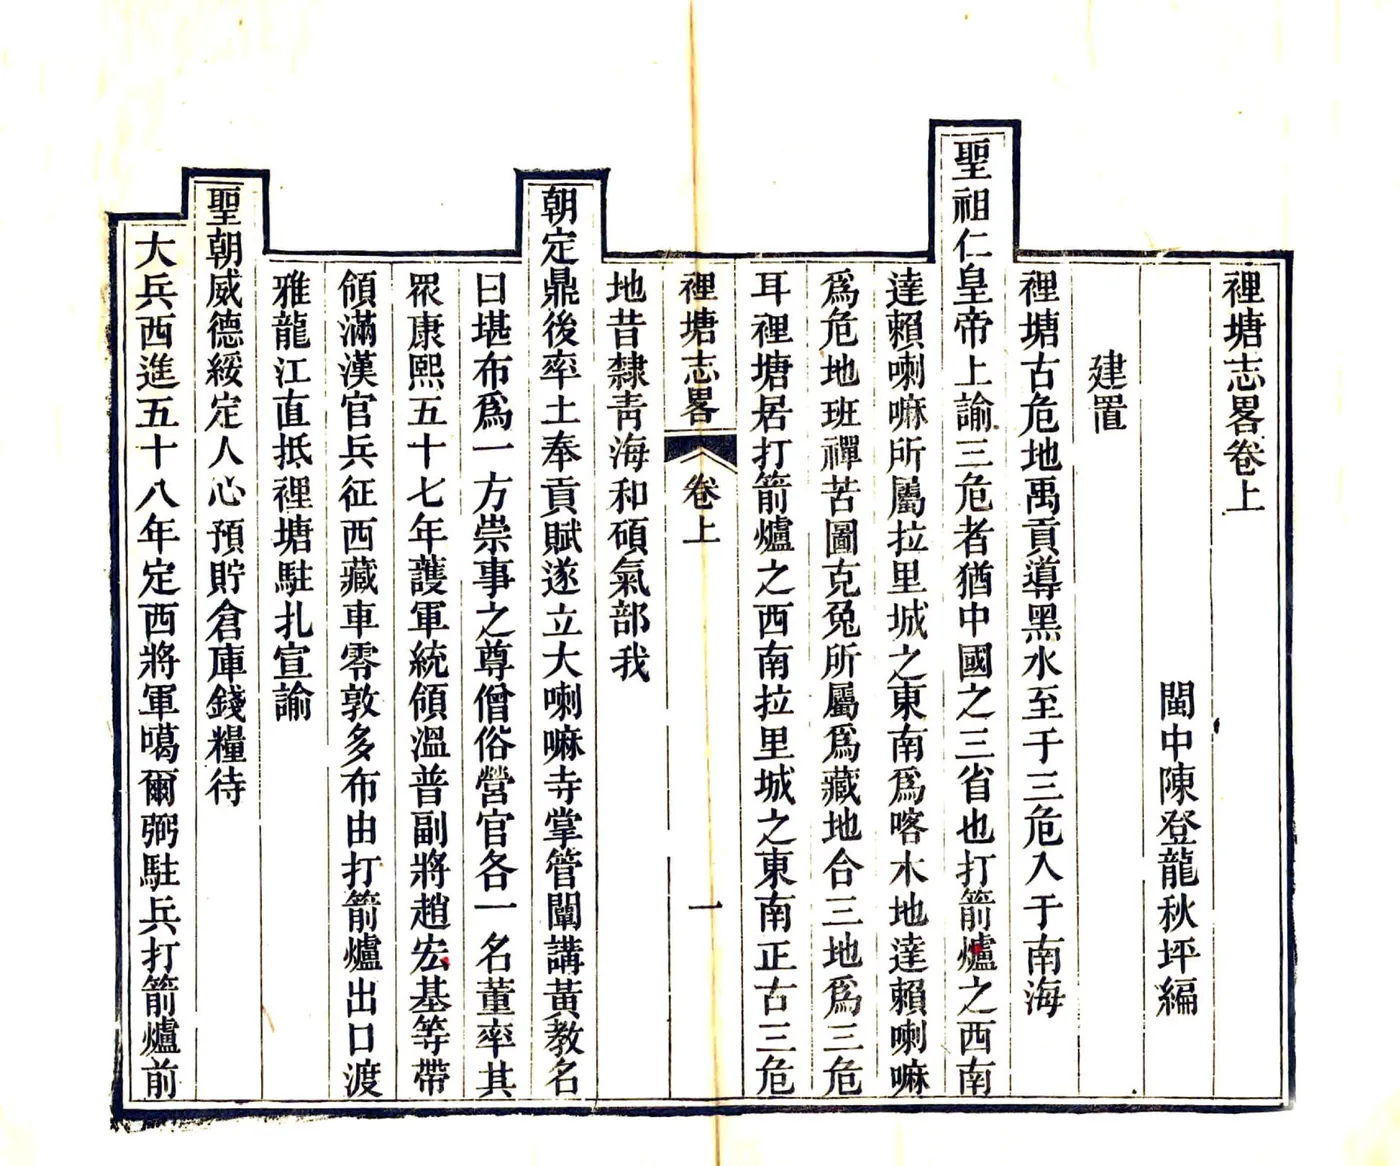 裡塘志畧卷上
閩中陳登龍秋坪編
建置
裡塘古危地禹貢導黑水至于三危入于南海
聖祖仁皇帝上諭三危者猶中國之三省也打箭爐之西南
達賴喇嘛所屬拉里城之東南爲喀木地達賴喇嘛
爲危地班禪苦圖克兔所屬爲藏地合三地爲三危
耳裡塘居打箭爐之西南拉里城之東南正古三危
裡塘志畧 卷上 一
地昔隸靑海和碩氣部我
朝定鼎後率土奉貢賦遂立大喇嘛寺掌管闡講黃教名
曰堪布爲一方崇事之尊僧俗營官各一名董率其
眾康熙五十七年護軍統領溫普副將趙宏基等帶
領滿漢官兵征西藏車零敦多布由打箭爐出口渡
雅龍江直抵裡塘駐扎宣諭
聖朝威德綏定人心預貯倉庫錢糧待
大兵西進五十八年定西將軍噶爾弼駐兵打箭爐前